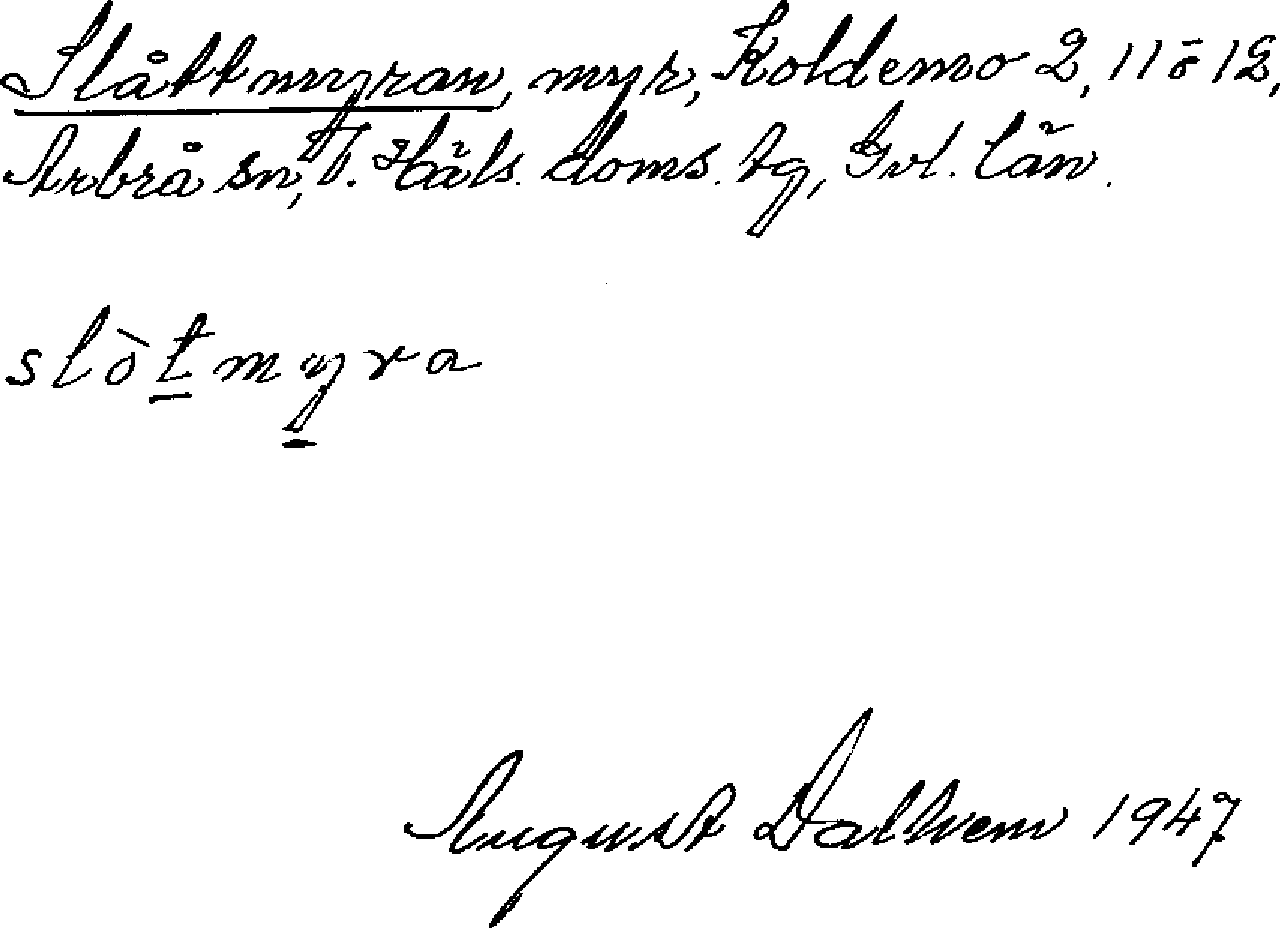 Slåttmyran, myr, Koldemo 2, 11 ö 12,
Arbrå sn, V. Häls. doms. tg, Gvl. län.
slòtmyra
August Dalhem 1947